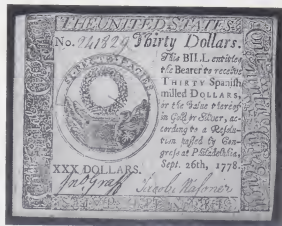 THE UNITED STATES
No. 241829 Thirty Dollars.
This BILL entitles
the Bearer to receive
THIRTY Spanish
milled DOLLARS,
or the Value thereof
in Gold or Silver, ac-
cording to a Resolu-
tion passed by Con-
gress at Philadelphia,
Sept. 26th, 1778.
XXX DOLLARS.